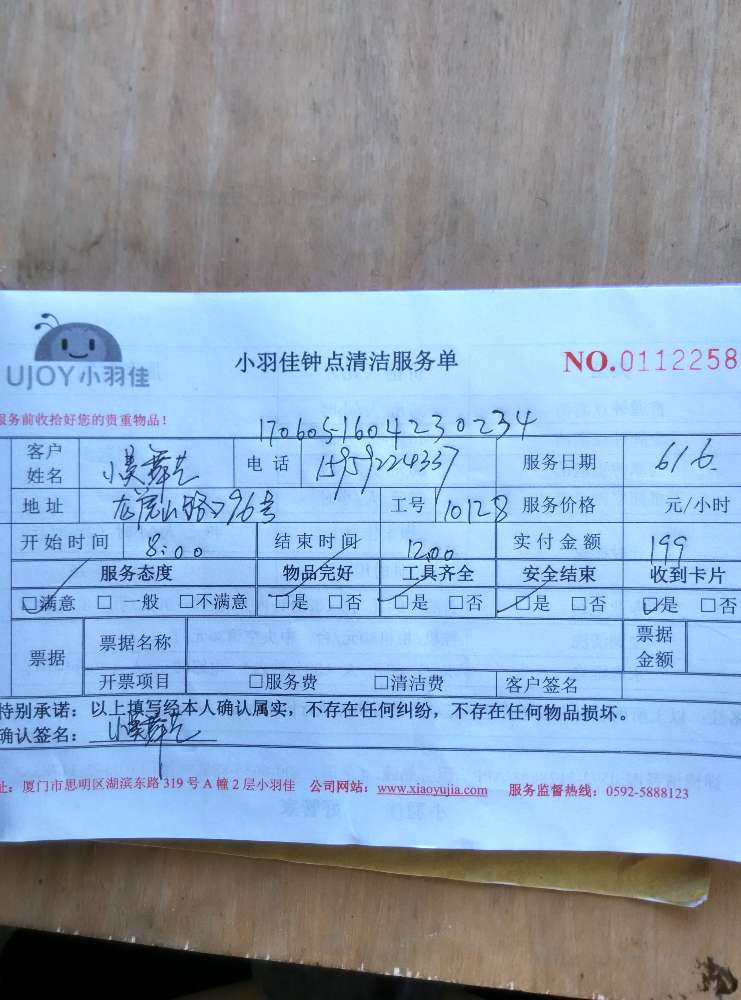 UJOY小羽佳
小羽佳钟点清洁服务单
NO.0112258
服务前收拾好您的贵重物品!
1706051604230234
客户姓名 小美舞艺 电话 15959224337 服务日期 6/6
地址 龙虎山路296号 工号 10128 服务价格 元/小时
开始时间 8:00 结束时间 12:00 实付金额 199
服务态度 物品完好 工具齐全 安全结束 收到卡片
□满意 □一般 □不满意 □是 □否 □是 □否 □是 □否 □是 □否
票据 票据名称 票据金额
开票项目 □服务费 □清洁费 客户签名
特别承诺:以上填写经本人确认属实,不存在任何纠纷,不存在任何物品损坏。
确认签名: 小美舞艺
址:厦门市思明区湖滨东路319号A幢2层小羽佳 公司网站:www.xiaoyujia.com 服务监督热线:0592-5888123